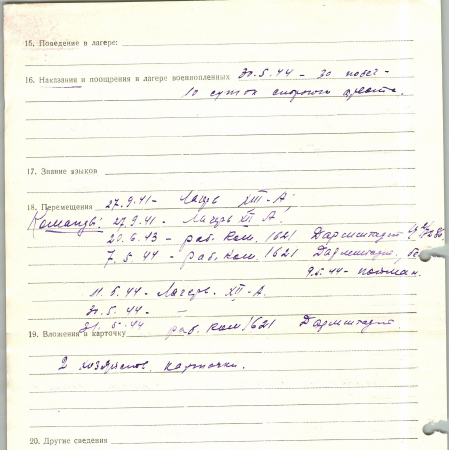 15. Поведение в лагере:
16. Наказания и поощрения в лагере военнопленных 31.5.44 - за побег -
10 суток строгого ареста.
17. Знание языков
18. Перемещения 27.9.41 - Лагерь XIII-А;
Команды: 27.9.41 - Лагерь XII А;
20.6.43 - раб. ком. 1621 Дармштадт
7.5.44 - раб. ком. 1621 Дармштадт,
9.5.44 - пойман.
11.5.44 - Лагерь XII-А.
31.5.44 -
31.5.44 раб. ком 1621 Дармштадт.
19. Вложения в карточку
2 хозяйствов. карточки.
20. Другие сведения